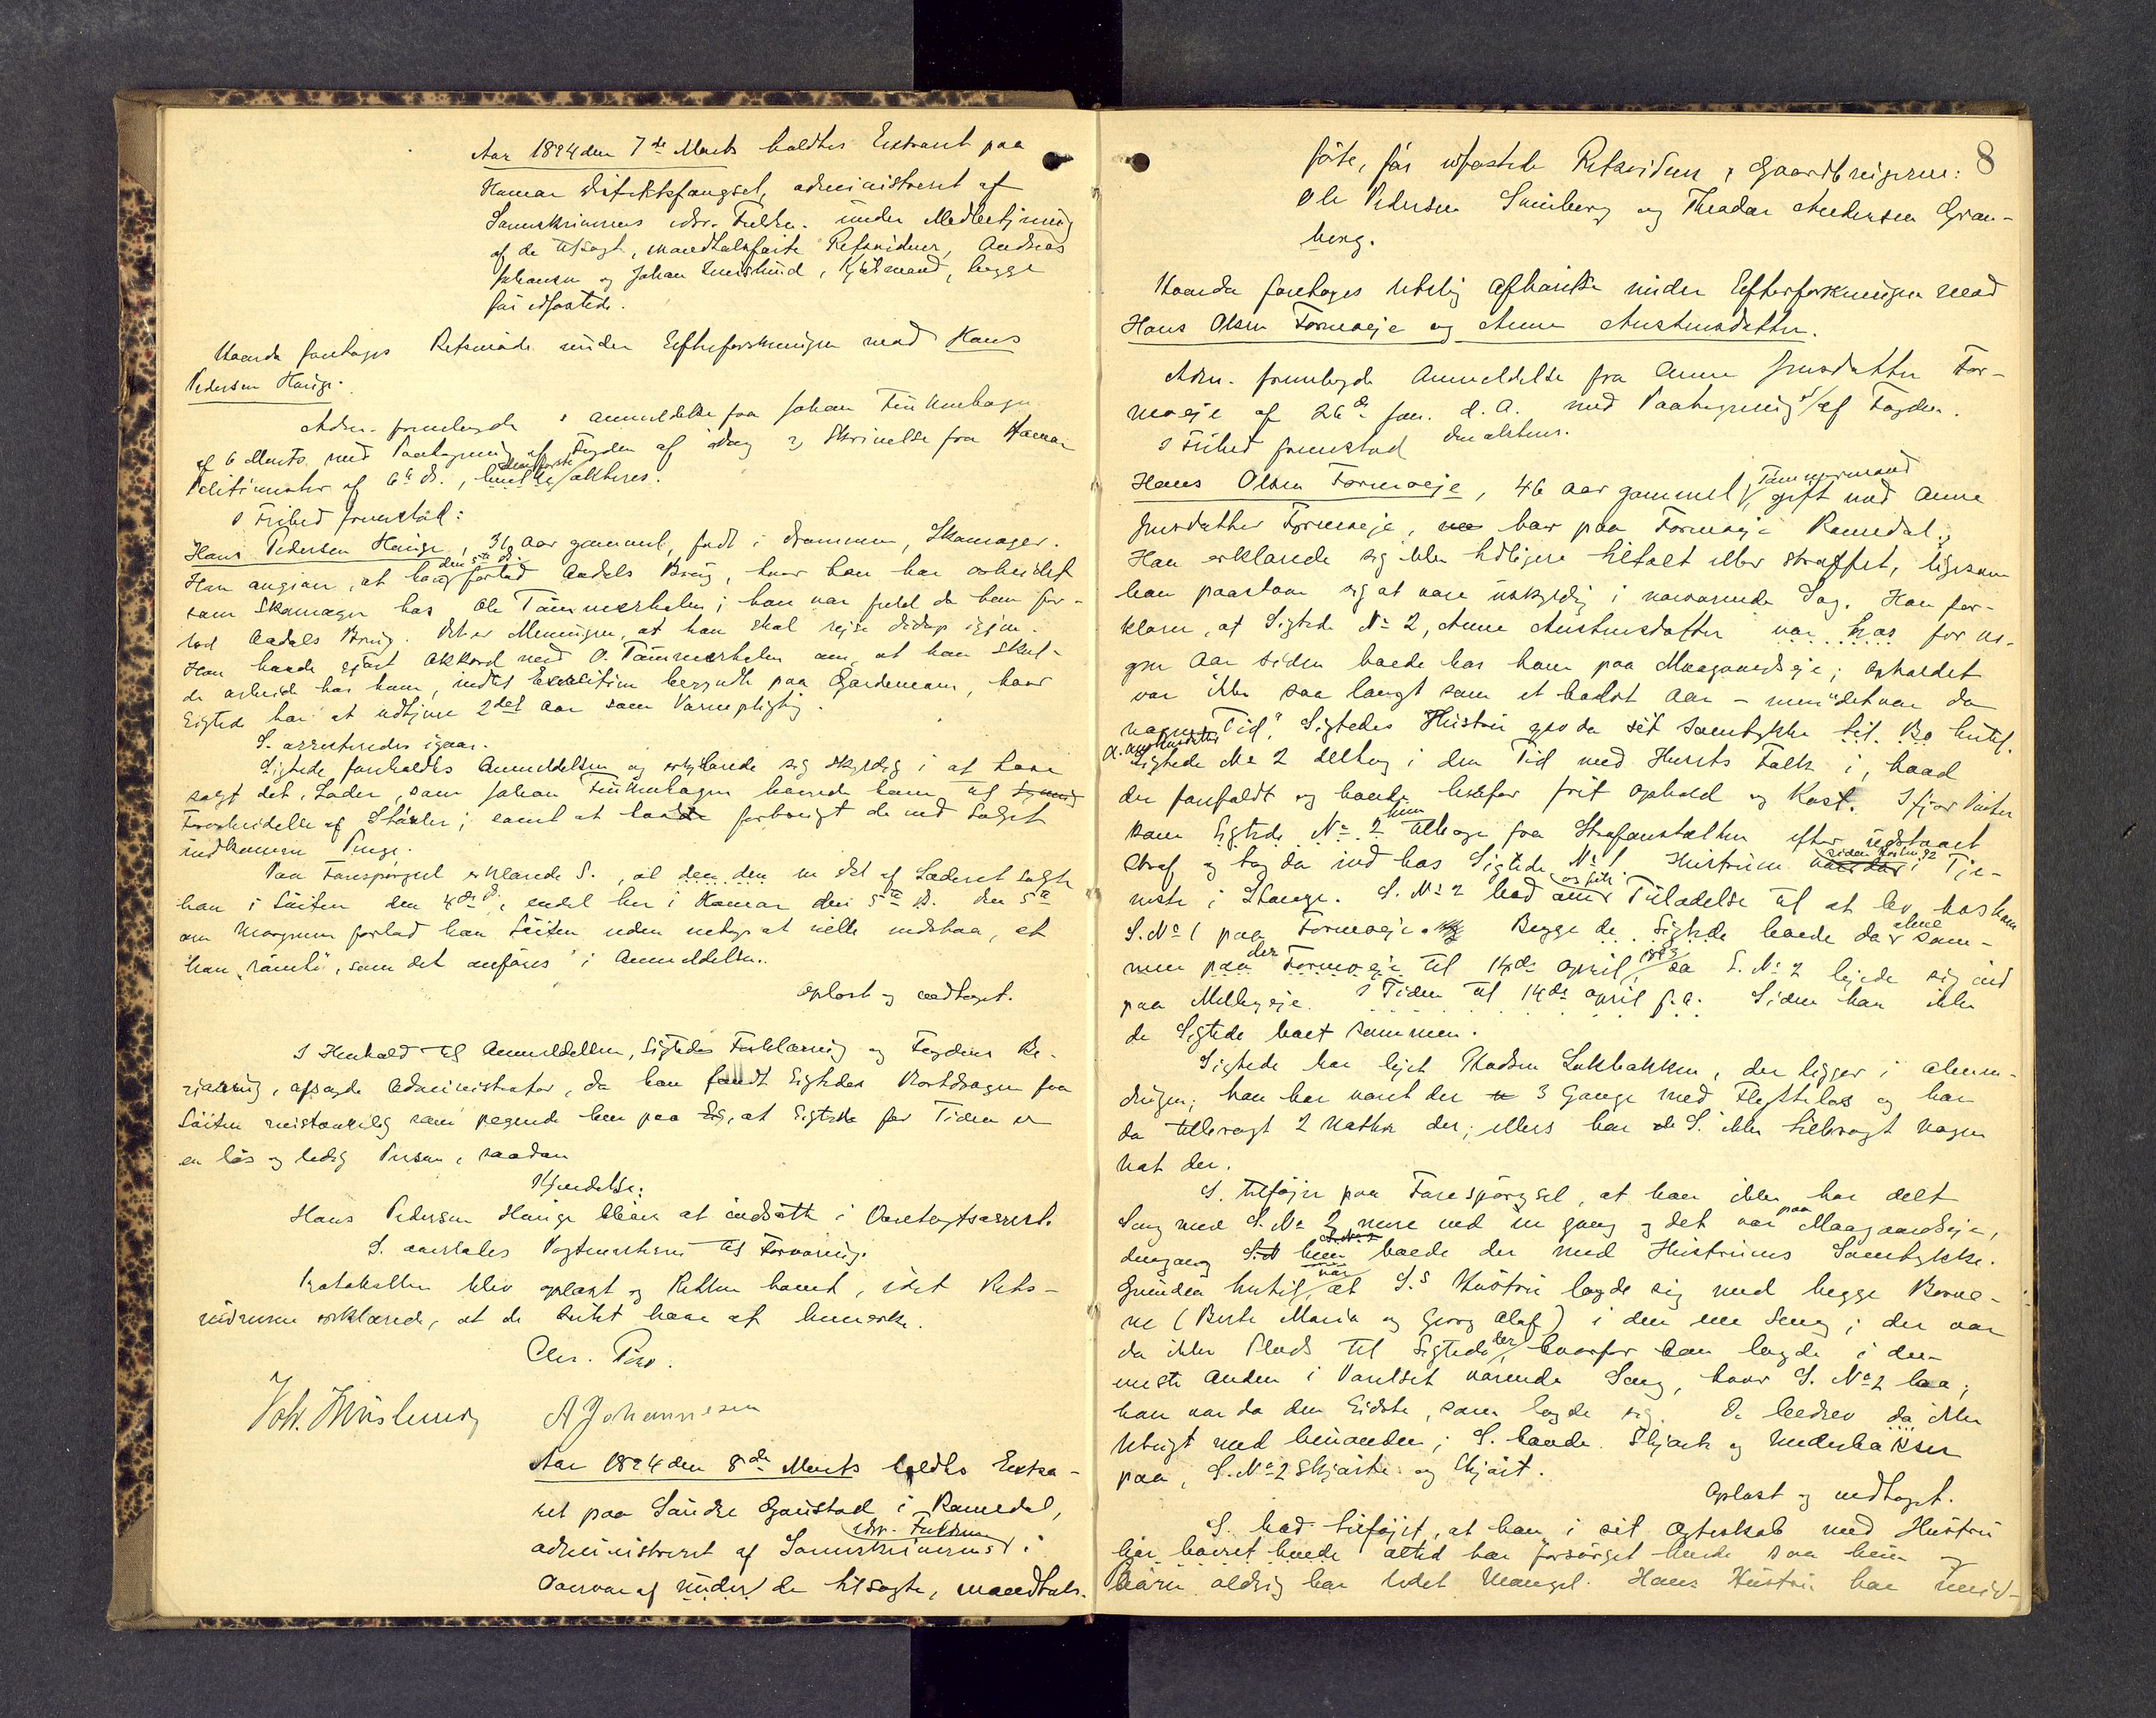 Aar 1894 den 7de Marts holdtes Extraret paa
Hamar Distriktsfængsel, administreret af
Sorenskriverens edsv. Fuldm. under Medbetjening
af de tilsagte, mandtalsførte Retsvidner, Andreas
Johansen og Johan Kurslund, Kjøbmænd, begge
før edfæstede.
Hvorda foretoges Retsmøde under Efterforskningen mod Hans
Pedersen Hauge.
Adm. fremlagde 1 Anmeldelse fra Johan Finkenhagen
af 6 Marts med Paategning af Fogden af idag 2, Skrivelse fra Hamar
Politimester af 6te ds., hvilke akteres.
I Frihed fremstod:
Hans Pedersen Hauge, 31 Aar gammel, født i Drammen, Skomager.
Han angiver, at han den 5te ds. forlod Aadals Brug, hvor han har arbeidet
som Skomager hos Ole Tømmerholen; han var fuld da han for-
lod Aadals Brug. Det er Meningen, at han skal rejse didop igjen.
Han havde gjort Akkord med O. Tømmerholen om, at han skul-
de arbeide hos ham, indtil Exercitien begyndte paa Gardemoen, hvor
Sigtede har at udtjene 2det Aar som Værnepligtig.
S. arresteredes igaar.
Sigtede foreholdtes Anmeldelsen og erklærede sig skyldig i at have
solgt det Læder, som Johan Finkenhagen havde ham til
Forarbeidelse af Støvler; samt at have forbrugt de ved Salget
indkomne Penge.
Paa Forespørgsel erklærede S., at den del af Læderet solgte
han i Løiten den 4de ds., endel her i Hamar den 5te ds. Den 5te
om Morgenen forlod han Løiten uden netop at ville undslaa, at
han "rømte", som det anføres i Anmeldelsen.
Oplæst og vedtaget.
I Henhold til Anmeldelsen, Sigtedes Forklaring og Fogdens Be-
gjæring, afsagde Administrator, da han fandt Sigtedes Bortdragen fra
Løiten mistænkelig som pegende hen paa, at Sigtede for Tiden er
en løs og ledig Person, saadan
Kjendelse:
Hans Pedersen Hauge bliver at indsætte i Varetægtsarrest.
S. overtales Vagtmesteren til Forvaring.
Protokollen blev oplæst og Retten hævet, idet Rets-
vidnerne erklærede, at de Intet have at bemerke.
Chr. 
Joh. A Johannesen
Aar 1894 den 8de Marts holdtes Extra-
ret paa Søndre Gaustad i Romedal,
administreret af Sorenskriverens edsv. Fuldm. i
Overvær af under de tilsagte, mandtals-
8
førte, før edfæstede Retsvidner, Gaardbrugerne:
Ole Pedersen Svenberg og Theodor Andersen Gran-
berg.
Hvorda foretoges retslig Afhørelse under Efterforskningen mod
Hans Olsen Formoeje og Anne Austensdatter.
Adm. fremlagde Anmeldelse fra Anne Jensdatter For-
moeje af 26de Jan. d. A. med Paategning af Fogden.
I Frihed fremstod den akteres.
Hans Olsen Formoeje, 46 Aar gammel, Tømmermand gift med Anne
Jensdatter Formoeje, bor paa Formoeje Romedal.
Han erklærede sig ikke tidligere tiltalt eller straffet, ligesom
han paastaar sig at være uskyldig i nærværende Sag. Han for-
klarer, at Sigtede No 2, Anne Austensdatter var hos for no-
gen Aar siden boede hos ham paa Maagaardseje; Opholdet
var ikke saa langt som et halvt Aar - men "det var da
nogen Tid." Sigtedes Hustru gav da sit Samtykke til Bo hertil.
A. Austensdatter Sigtede No 2 deltog i den Tid med Husets Folk i, hvad
der forefaldt og havde herfor frit Ophold og Kost. Ifjor Vinter
kom Sigtede No 2 hun tilbage fra Strafanstalten efter udstaaet
Straf og tog da ind hos Sigtede No 1. Hustruen var da siden Høsten 92 i Tje-
neste i Stange. S. No 2 bad om og fik Tilladelse til at bo hos ham
S. No 1 paa Formoeje. Begge de Sigtede boede da alene sam-
men paa der Formoeje til 14de April 1893 da S. No 2 leiede sig ind
paa Melbyeje. I Tiden til 14de April f. A. Siden har ikke
de Sigtede boet sammen.
Sigtede har lejet Pladsen Lukbakken, der ligger i Almen-
dingen; han har været der 3 Gange med Flyttelas og har
da tilbragt 2 Nætter der; ellers har S. ikke tilbragt nogen
Nat der.
S. tilføjer paa Forespørgsel, at han ikke har delt
Seng med S. No 2 mere end en gang og det var paa Maagaardseje,
dengang hun boede der med Hustruens Samtykke.
Grunden hertil var at S.s Hustru lagde sig med begge Børne-
ne (Berte Maria og Georg Olaf) i den ene Seng; der var
da ikke Plads til Sigtede her, hvorfor han lagde i den
eneste anden i Værelset værende Seng, hvor S. No 2 laa;
han var da den Sidste, som lagde sig. De bedrev da ikke
Utugt med hinanden; S. havde Skjorte og Underbukser
paa, S. No 2 Skjørte og Skjørt.
Oplæst og vedtaget.
S. bad tilføjet, at han i sit Ægteskab med Hustru
har baaret hende altid har forsørget hende saa hun og
Børn aldrig har lidt Mangel. Hans Hustru har imid-